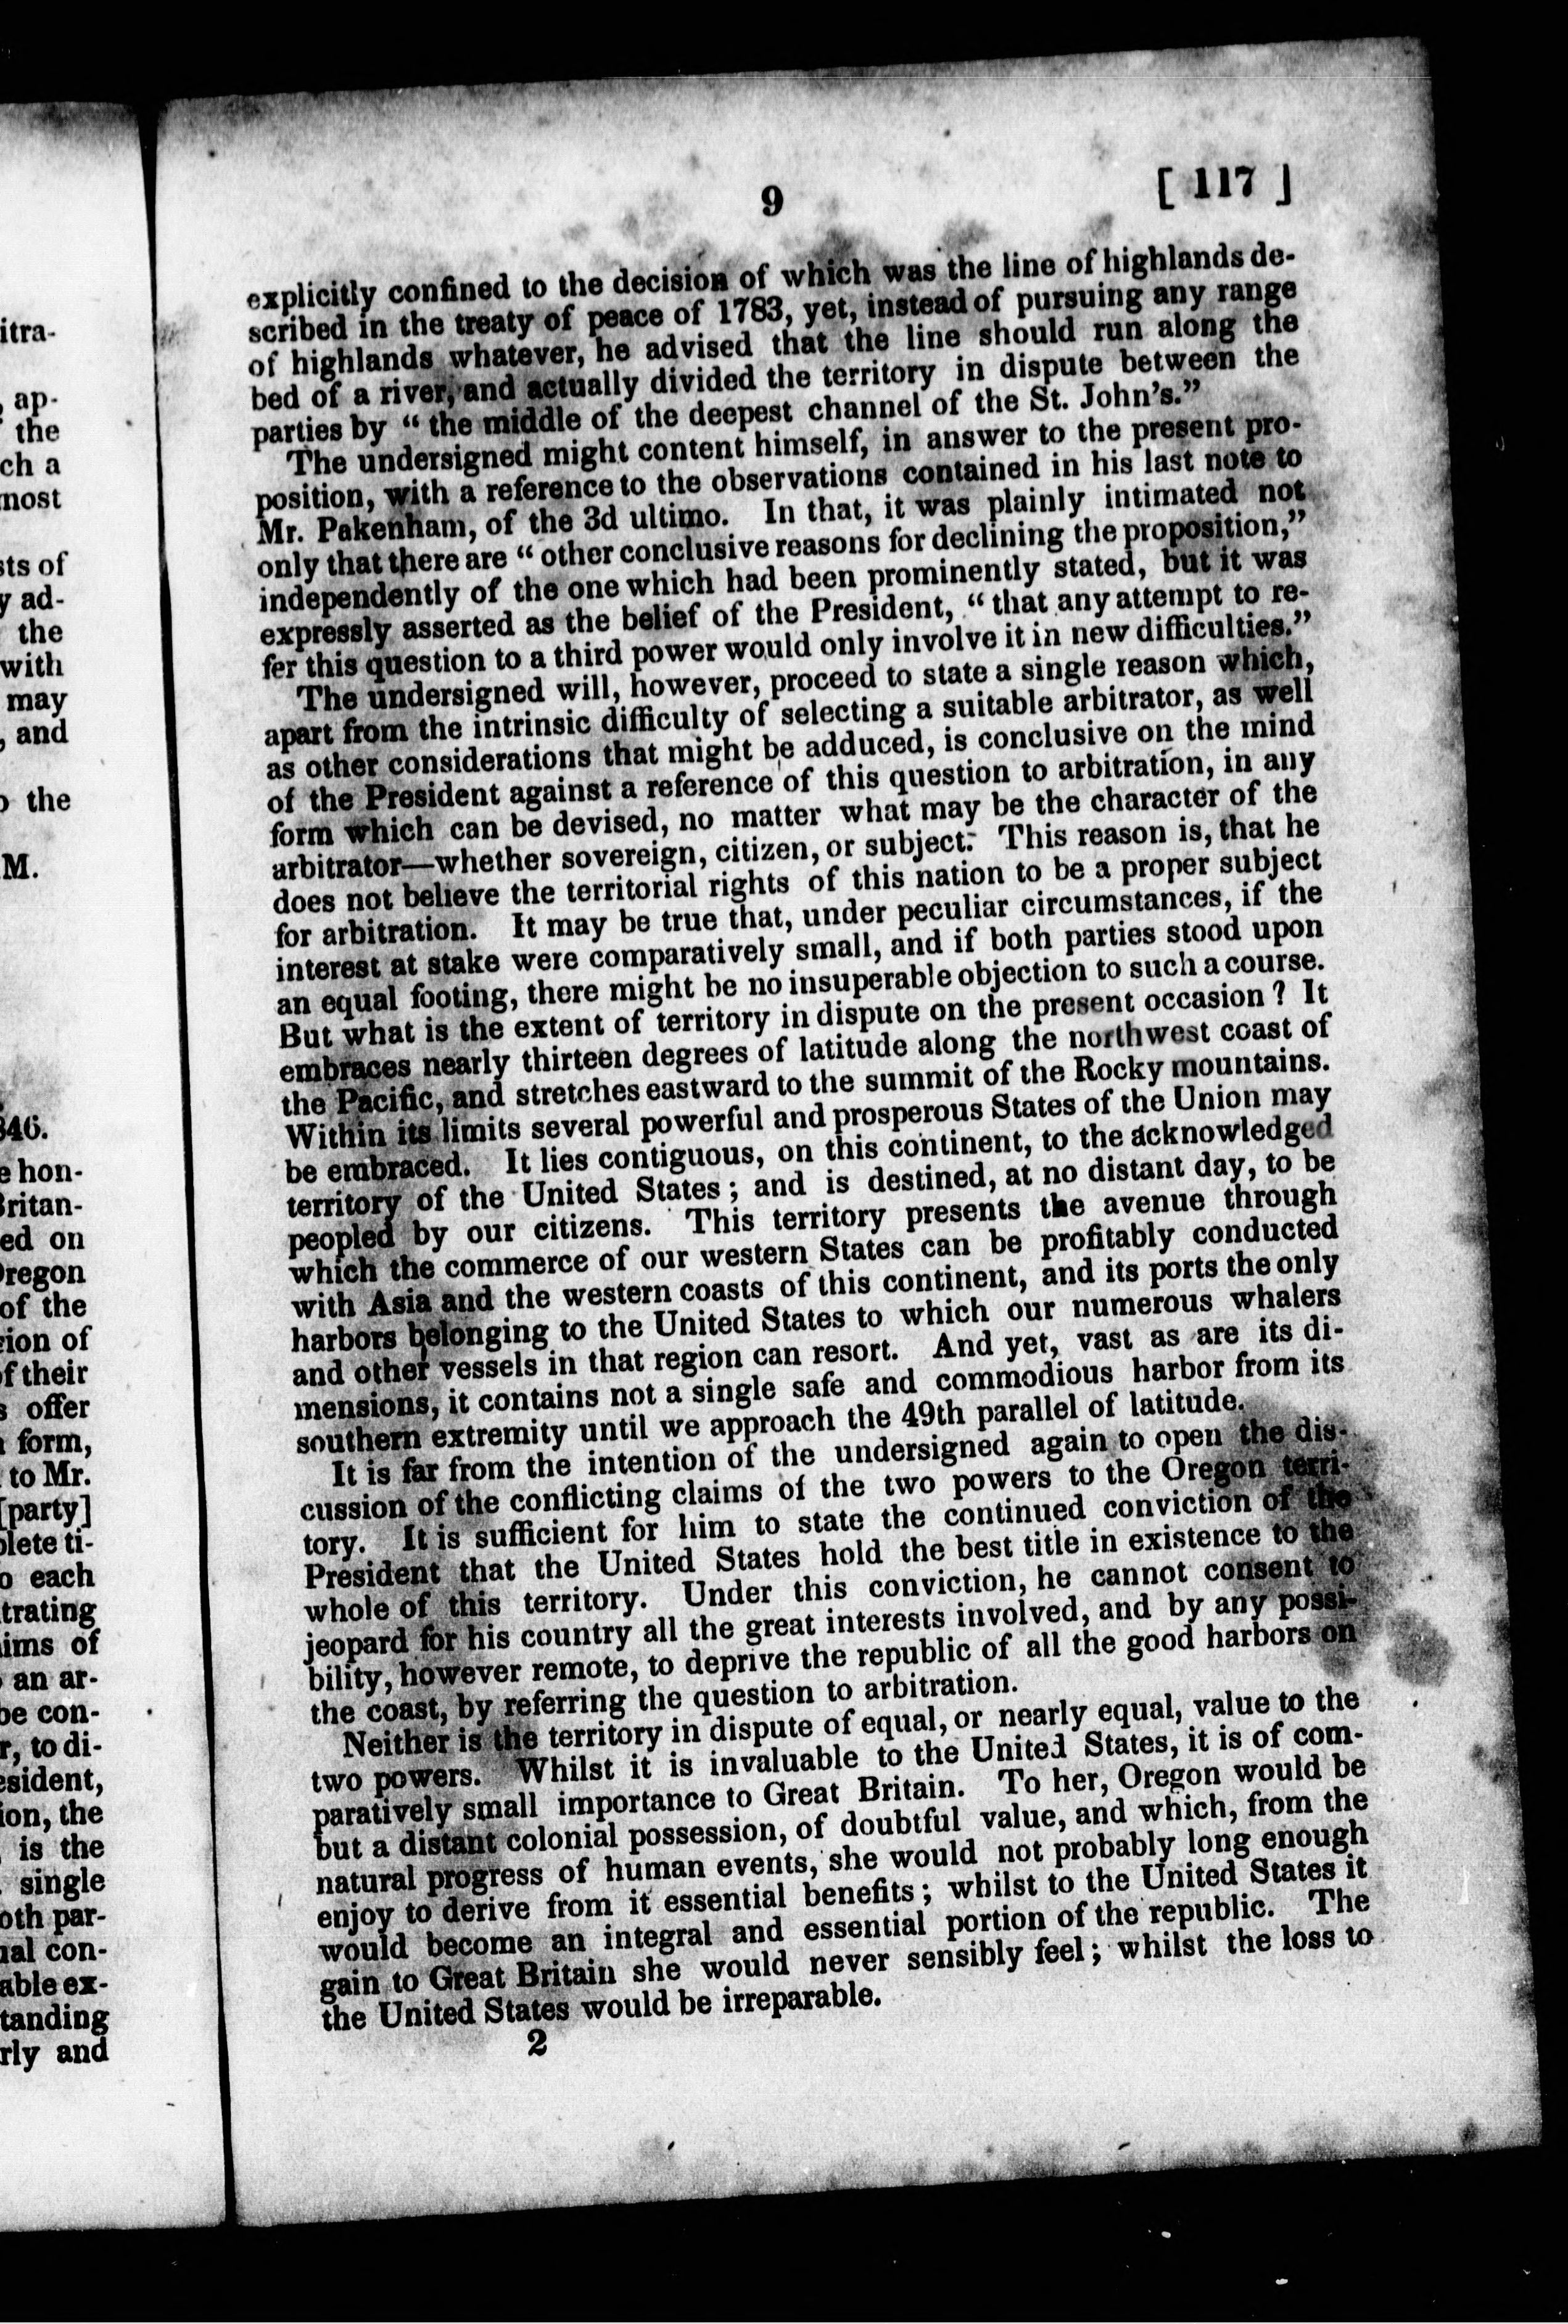 itra-
, ap-
the
ch a
most
sts of
y ad-
the
with
may
, and
the
M.
346.
e hon-
Britan-
ed on
Oregon
of the
sion of
of their
s offer
form,
to Mr.
[party]
plete ti-
o each
trating
ims of
an ar-
be con-
r, to di-
esident,
ion, the
is the
single
oth par-
ual con-
able ex-
tanding
rly and
9
[ 117 ]
explicitly confined to the decision of which was the line of highlands de-
scribed in the treaty of peace of 1783, yet, instead of pursuing any range
of highlands whatever, he advised that the line should run along the
bed of a river, and actually divided the territory in dispute between the
parties by “ the middle of the deepest channel of the St. John’s.”
The undersigned might content himself, in answer to the present pro-
position, with a reference to the observations contained in his last note to
Mr. Pakenham, of the 3d ultimo. In that, it was plainly intimated not
only that there are “ other conclusive reasons for declining the proposition,”
independently of the one which had been prominently stated, but it was
expressly asserted as the belief of the President, “ that any attempt to re-
fer this question to a third power would only involve it in new difficulties.”
The undersigned will, however, proceed to state a single reason which,
apart from the intrinsic difficulty of selecting a suitable arbitrator, as well
as other considerations that might be adduced, is conclusive on the mind
of the President against a reference of this question to arbitration, in any
form which can be devised, no matter what may be the character of the
arbitrator—whether sovereign, citizen, or subject. This reason is, that he
does not believe the territorial rights of this nation to be a proper subject
for arbitration. It may be true that, under peculiar circumstances, if the
interest at stake were comparatively small, and if both parties stood upon
an equal footing, there might be no insuperable objection to such a course.
But what is the extent of territory in dispute on the present occasion ? It
embraces nearly thirteen degrees of latitude along the northwest coast of
the Pacific, and stretches eastward to the summit of the Rocky mountains.
Within its limits several powerful and prosperous States of the Union may
be embraced. It lies contiguous, on this continent, to the acknowledged
territory of the United States ; and is destined, at no distant day, to be
peopled by our citizens. This territory presents the avenue through
which the commerce of our western States can be profitably conducted
with Asia and the western coasts of this continent, and its ports the only
harbors belonging to the United States to which our numerous whalers
and other vessels in that region can resort. And yet, vast as are its di-
mensions, it contains not a single safe and commodious harbor from its
southern extremity until we approach the 49th parallel of latitude.
It is far from the intention of the undersigned again to open the dis-
cussion of the conflicting claims of the two powers to the Oregon terri-
tory. It is sufficient for him to state the continued conviction of the
President that the United States hold the best title in existence to the
whole of this territory. Under this conviction, he cannot consent to
jeopard for his country all the great interests involved, and by any possi-
bility, however remote, to deprive the republic of all the good harbors on
the coast, by referring the question to arbitration.
Neither is the territory in dispute of equal, or nearly equal, value to the
two powers. Whilst it is invaluable to the United States, it is of com-
paratively small importance to Great Britain. To her, Oregon would be
but a distant colonial possession, of doubtful value, and which, from the
natural progress of human events, she would not probably long enough
enjoy to derive from it essential benefits ; whilst to the United States it
would become an integral and essential portion of the republic. The
gain to Great Britain she would never sensibly feel ; whilst the loss to
the United States would be irreparable.
2